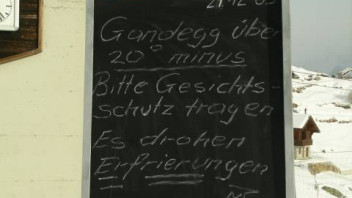 Gandegg über
20° minus
Bitte Gesichts-
schutz tragen
Es drohen
Erfrierungen